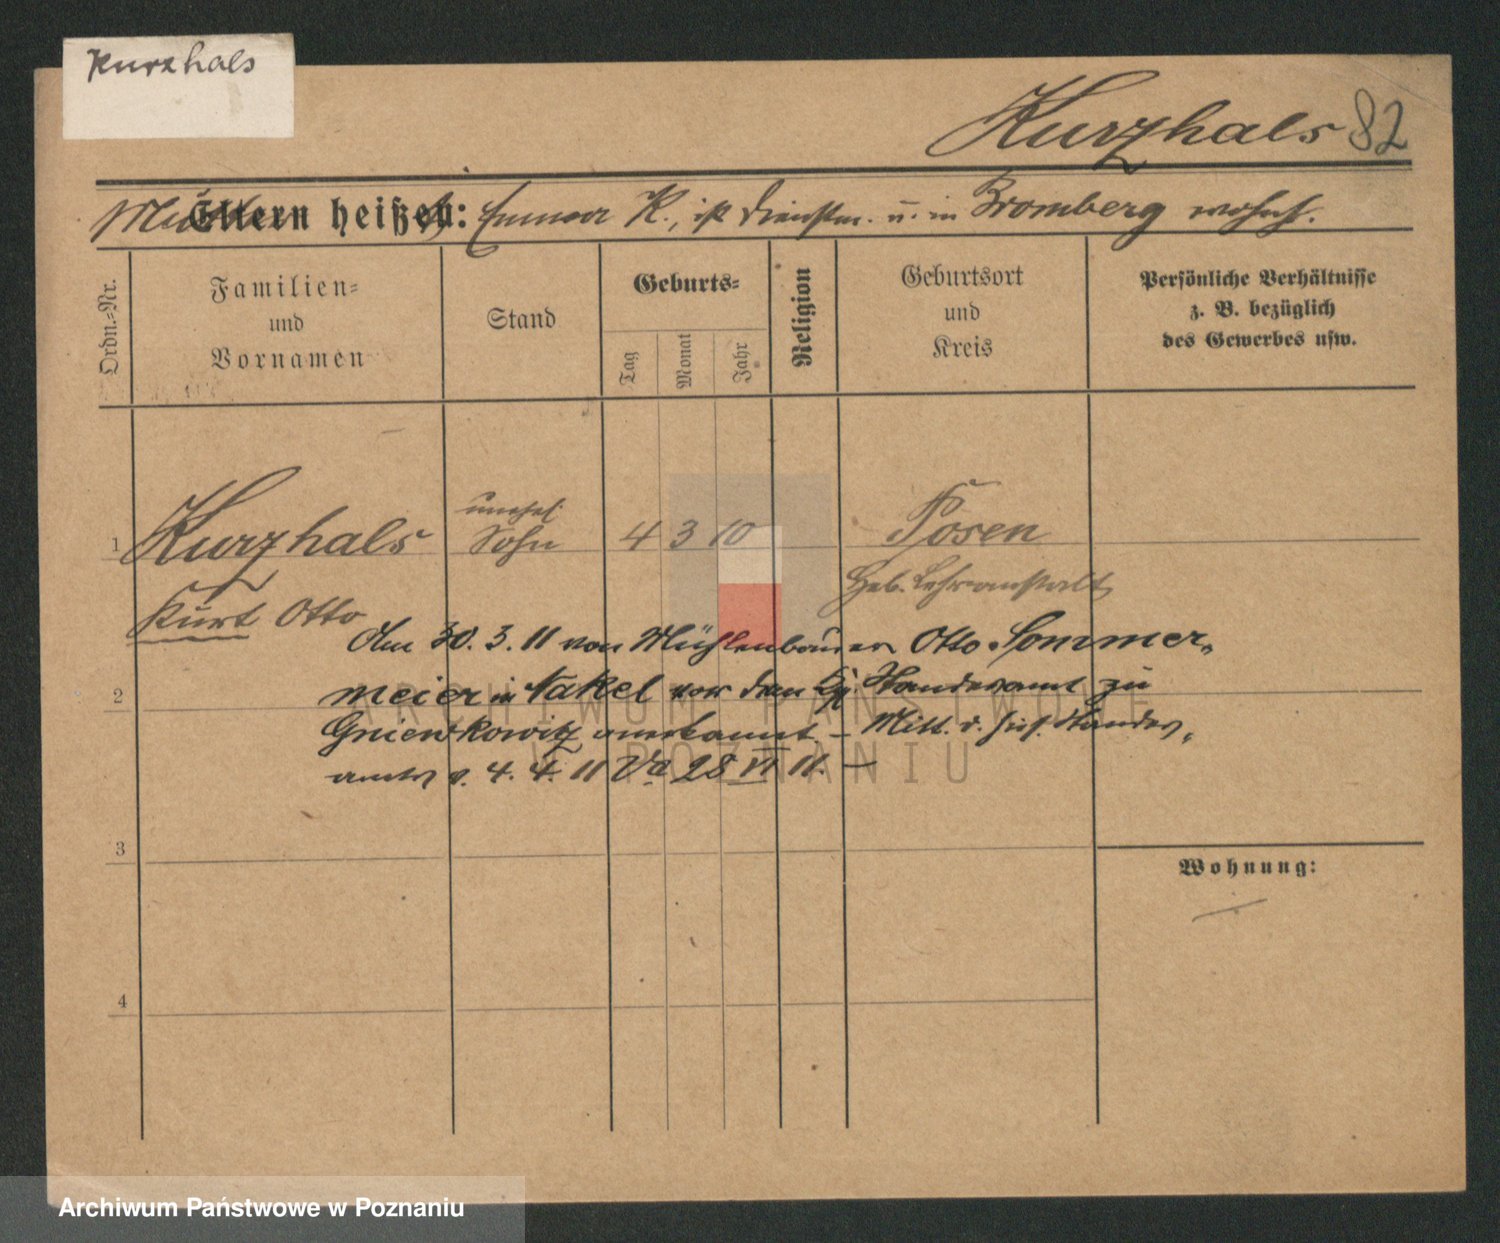 Kurzhals
Kurzhals 82
Eltern heißen: Emma K., ist Dienstm. u. in Bromberg wohnh.
Ordn.-Nr.
Familien-
und
Vornamen
Stand
Geburts-
Tag
Monat
Jahr
Religion
Geburtsort
und
Kreis
Persönliche Verhältnisse
z. B. bezüglich
des Gewerbes usw.
1 Kurzhals unehel. Sohn 4 3 10 Posen
Heb. Lehranstalt
Kurt Otto
Am 30. 3. 11 von Mühlenbauer Otto Sommer-
2
meier in Nakel vor dem Kgl. Standesamt zu
Gniewkowitz anerkannt – Mitt. d. hies. Standes-
amtes v. 4. 4. 11 Va 28 VI 11. —
3
Wohnung:
4
ARCHIWUM PAŃSTWOWE
W POZNANIU
Archiwum Państwowe w Poznaniu